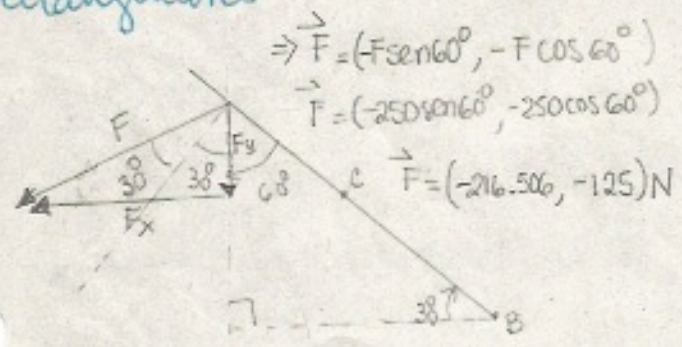 ⇒ F⃗ = (-Fsen60°, -Fcos60°)
F⃗ = (-250sen60°, -250cos60°)
F⃗ = (-216.506, -125)N
F
Fy
30°
38°
68
C
Fx
38°
B